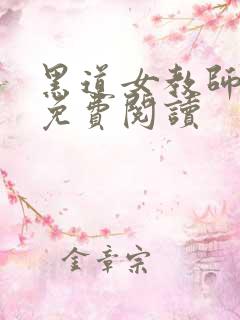 黑道女教師
免費閱讀
金章宗